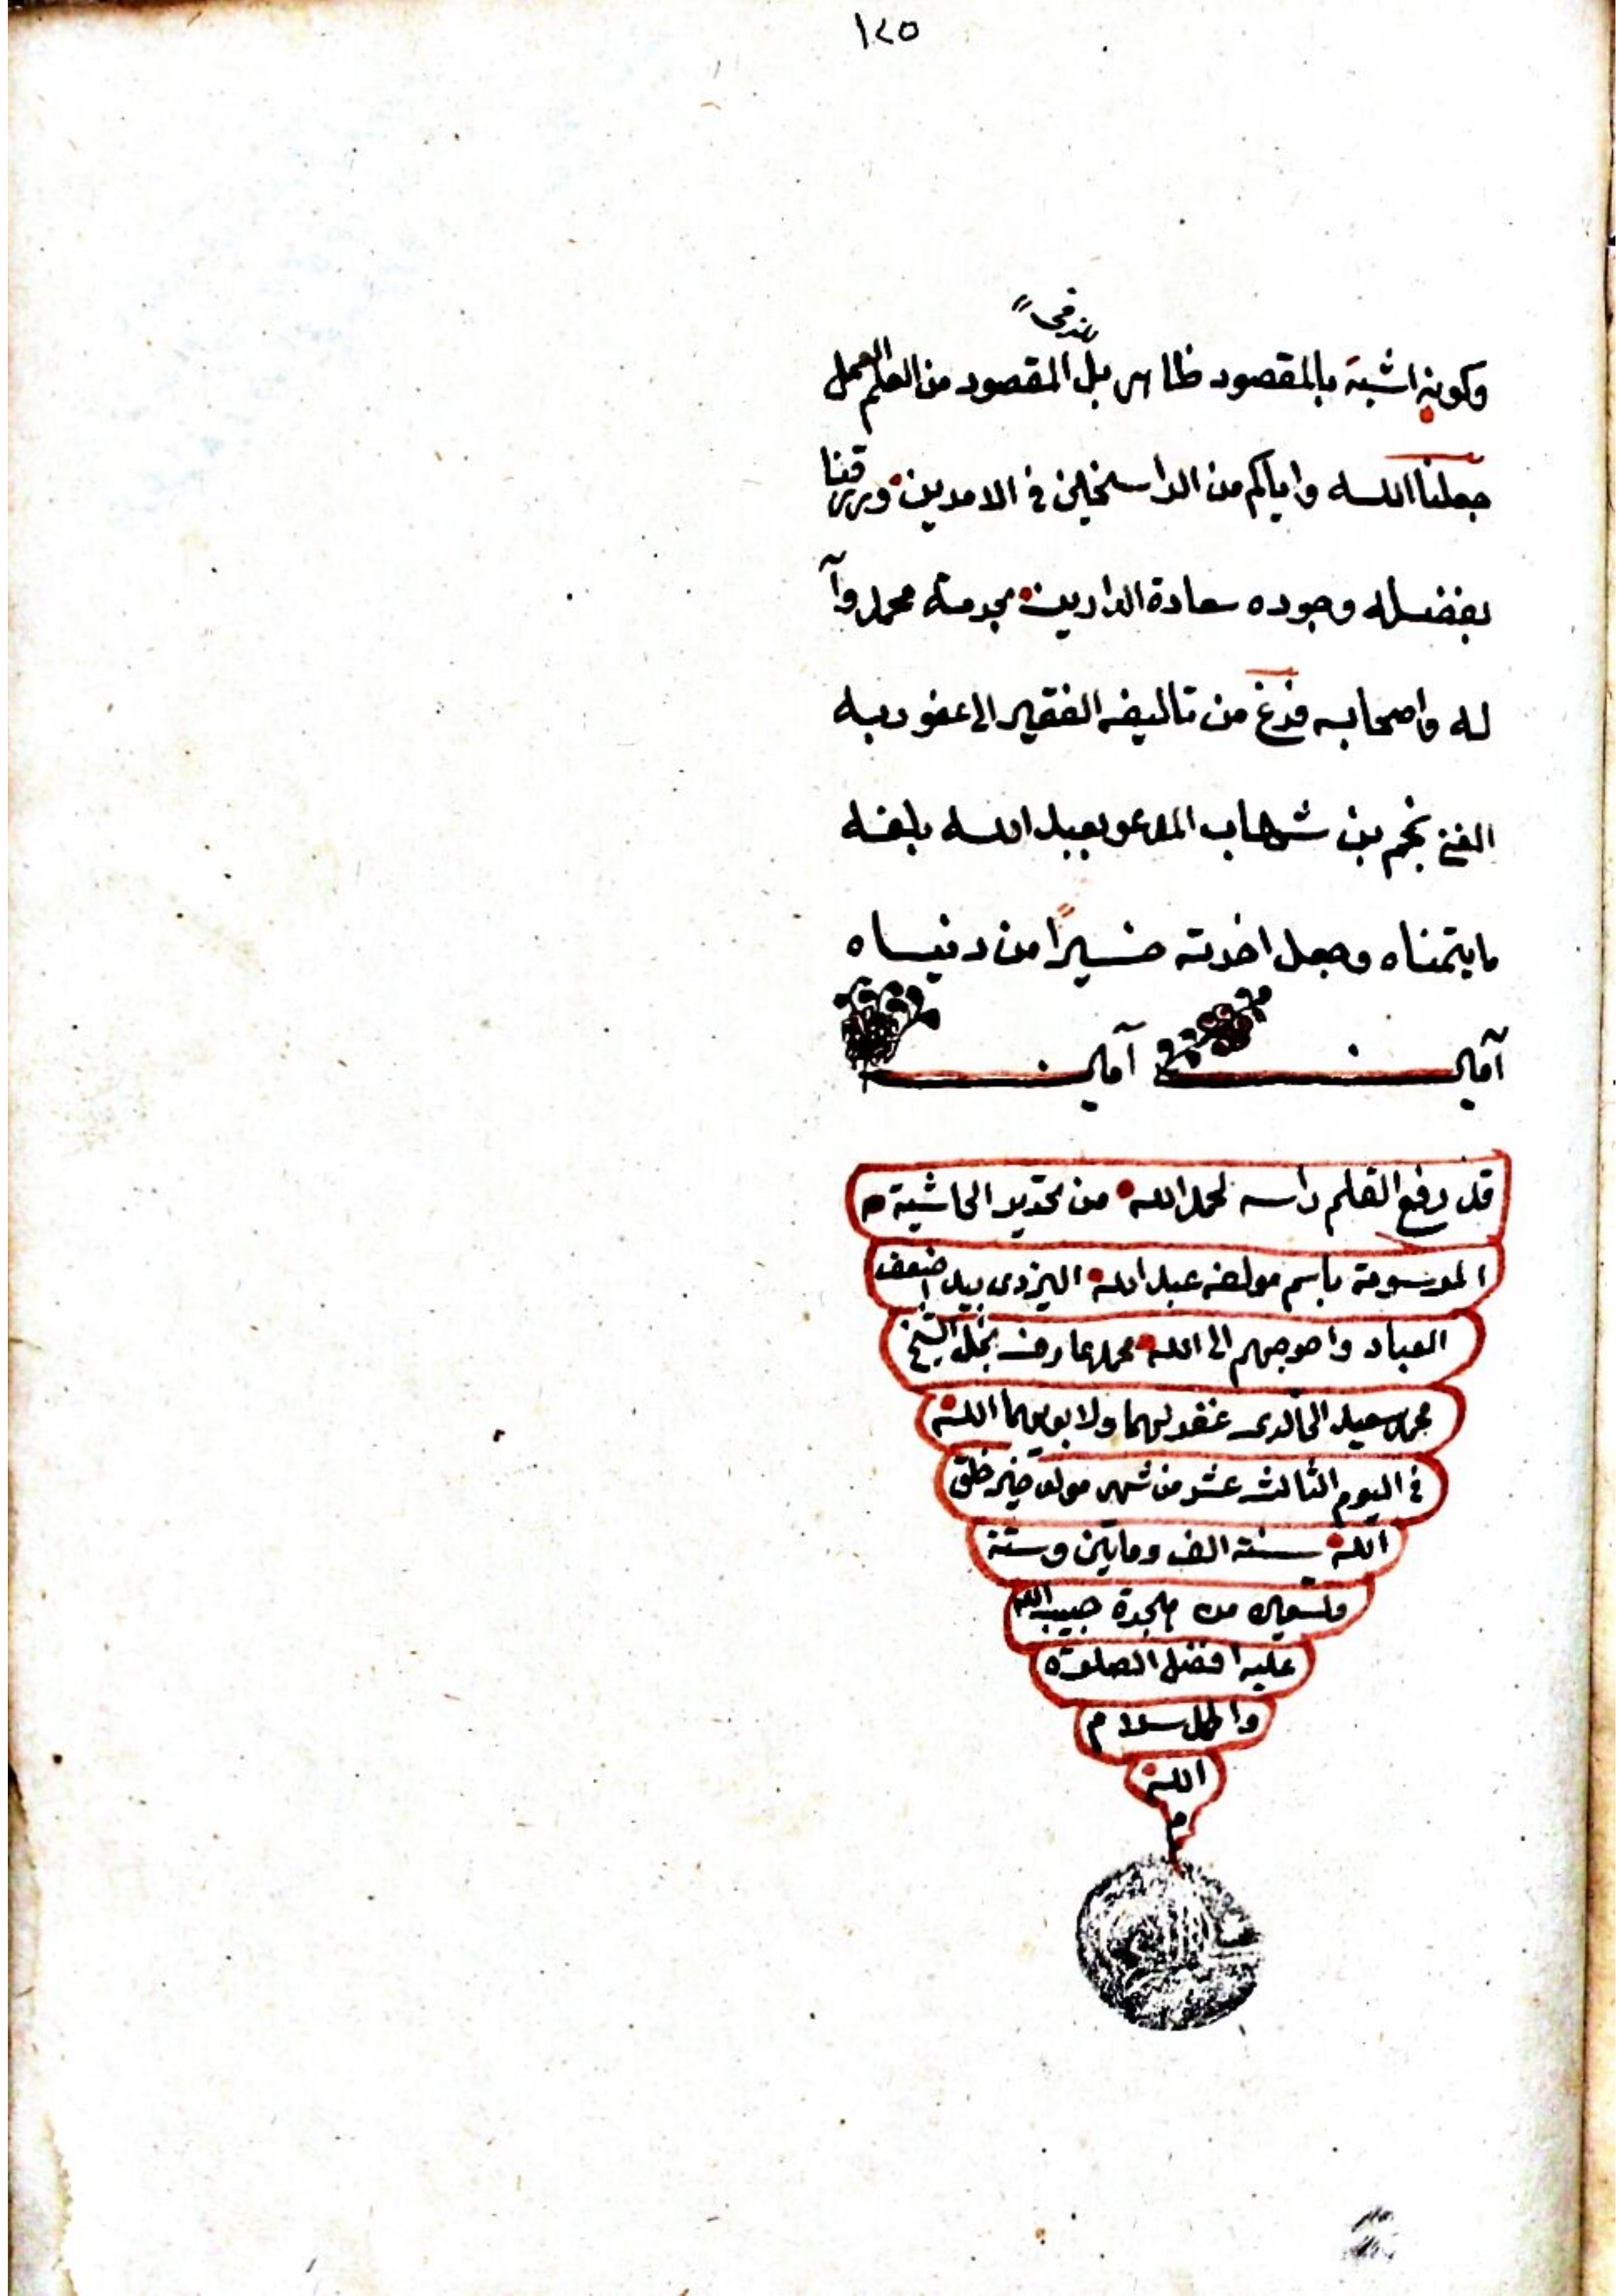 ١٢٥
وكونه اشبه بالمقصود ظاهر بل المقصود من العلم العمل
جعلنا الله واياكم من الراسخين في الامرين ورزقنا
بفضله وجوده سعادة الدارين بحرمة محمد وآ
له واصحابه فرغ من تاليفه الفقير الى عفو ربه
الغني نجم بن شهاب المدعو بعبد الله بلغه
ما يتمناه وجعل اخرته خيرًا من دنياه
آمين آمين
قد رفع القلم راسه لحمد الله من تحرير الحاشية م
الموسومة باسم مولفه عبد الله اليزدى بيد اضعف
العباد واحوجهم الى الله محمد عارف نجل الشيخ
محمد سعيد الخالدى غفر لهما ولابويهما الله
في اليوم الثالث عشر من شهر مولد خير خلق
الله سنة الف ومايتين وستة
وتسعين من هجرة حبيب الله
عليه افضل الصلوة
واكمل سلام
الله
م